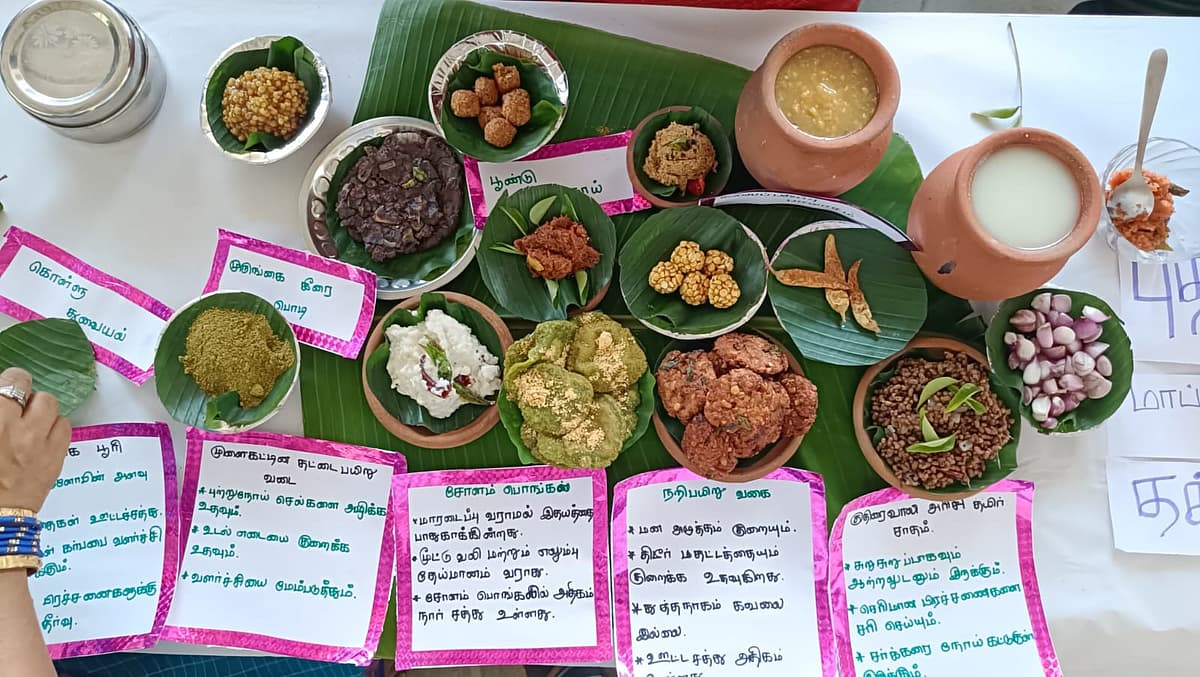 பூண்டு
முருங்கை கீரை
பொடி
கொள்ளு
துவையல்
பூரி
அளவு
ஊட்டச்சத்து.
கர்பபை வளர்ச்சி
தீர்வு.
முளைகட்டின தட்டைபயிறு
வடை
* புற்றுநோய் செல்களை அழிக்க
உதவும்.
* உடல் எடையை குறைக்க
உதவும்.
* வளர்ச்சியை மேம்படுத்தும்.
சோளம் பொங்கல்
* மாரடைப்பு வராமல் இதயத்தை
பாதுகாக்கின்றது.
* மூட்டு வலி மற்றும் எலும்பு
தேய்மானம் வராது.
* சோளம் பொங்கலில் அதிகம்
நார் சத்து உள்ளது.
நரிபயிறு வகை
* மன அழுத்தம் குறையும்.
* திடீர் பதட்டத்தையும்
குறைக்க உதவுகிறது.
* துத்தநாகம் கவலை
இல்லை.
* ஊட்ட சத்து அதிகம்
குதிரைவாலி அரிசி தயிர்
சாதம்.
* சுறுசுறுப்பாகவும்
ஆற்றலுடனும் இருக்கும்.
* செரிமான பிரச்சனைகளை
சரி செய்யும்.
* சர்க்கரை நோய் கட்டுக்குள்
இருக்கும்.